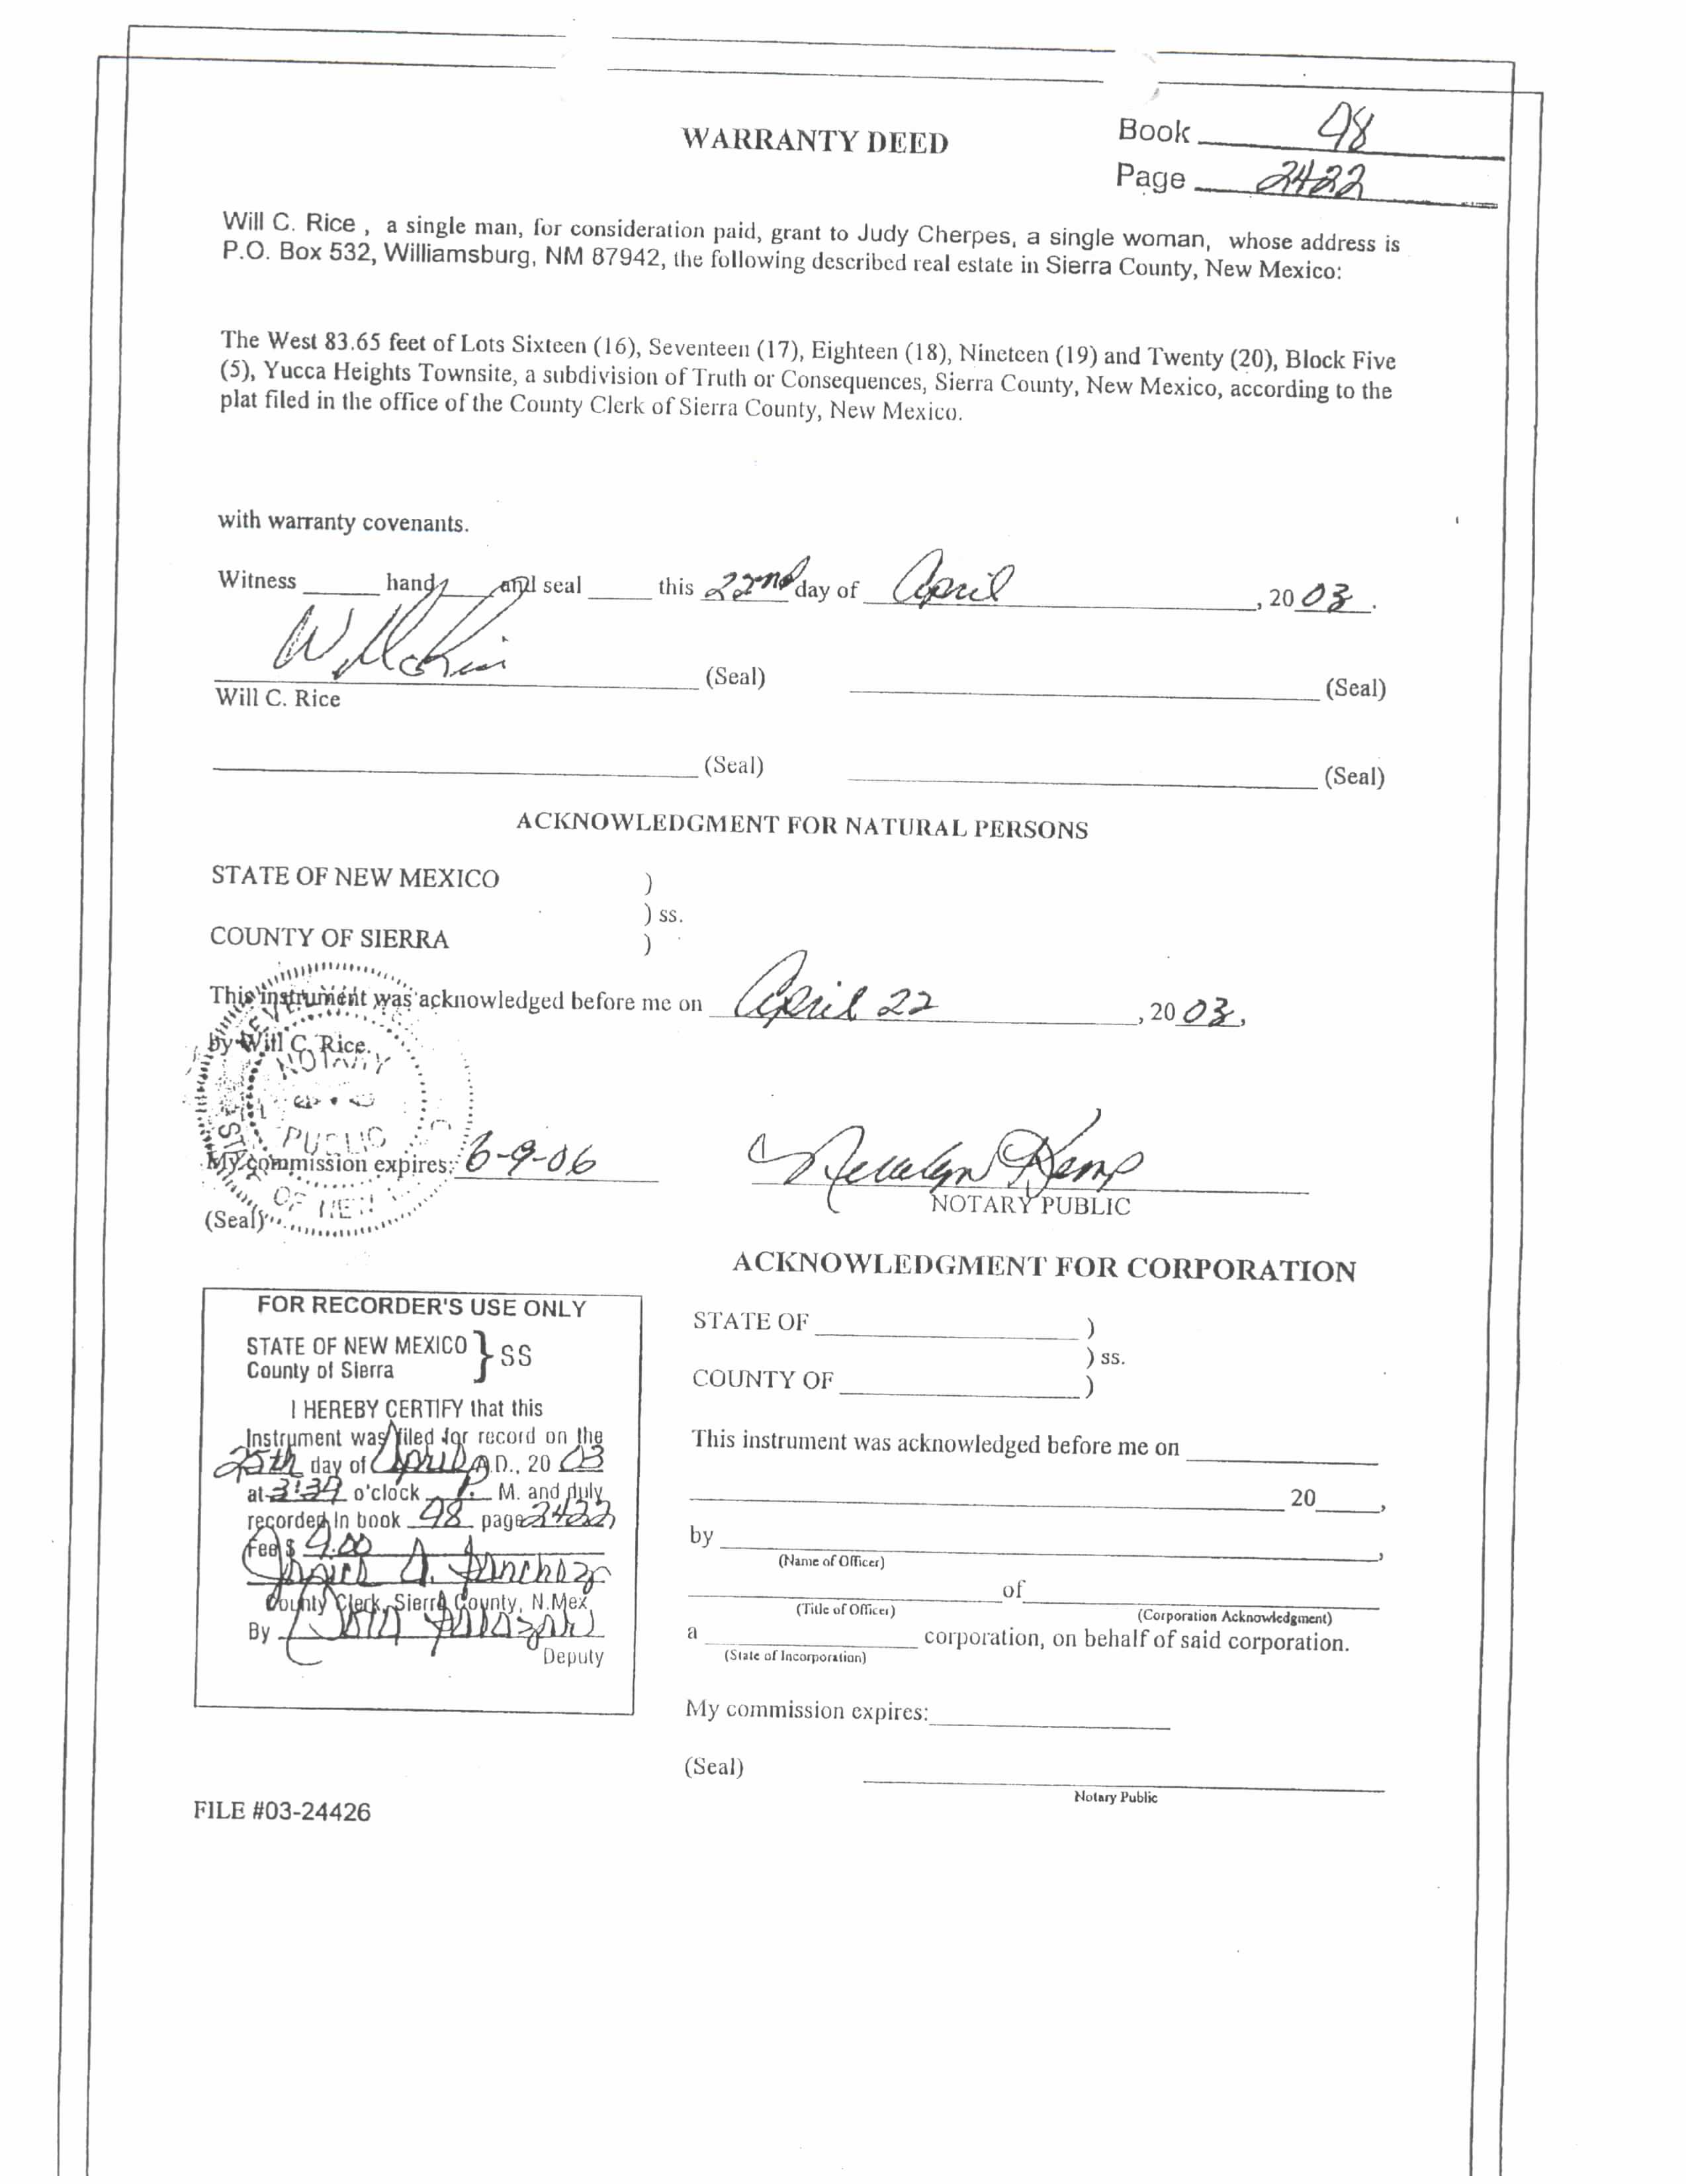 WARRANTY DEED
Book 98
Page 2422
Will C. Rice , a single man, for consideration paid, grant to Judy Cherpes, a single woman, whose address is
P.O. Box 532, Williamsburg, NM 87942, the following described real estate in Sierra County, New Mexico:
The West 83.65 feet of Lots Sixteen (16), Seventeen (17), Eighteen (18), Nineteen (19) and Twenty (20), Block Five
(5), Yucca Heights Townsite, a subdivision of Truth or Consequences, Sierra County, New Mexico, according to the
plat filed in the office of the County Clerk of Sierra County, New Mexico.
with warranty covenants.
Witness ______ hand ______ and seal _____ this 22nd day of April , 20 03 .
(Seal) (Seal)
Will C. Rice
(Seal) (Seal)
ACKNOWLEDGMENT FOR NATURAL PERSONS
STATE OF NEW MEXICO )
) ss.
COUNTY OF SIERRA )
This instrument was acknowledged before me on April 22 , 20 03,
by Will C. Rice.
NOTARY
PUBLIC
My commission expires: 6-9-06
OF NEW
NOTARY PUBLIC
(Seal)
ACKNOWLEDGMENT FOR CORPORATION
FOR RECORDER'S USE ONLY
STATE OF NEW MEXICO } SS
County of Sierra
I HEREBY CERTIFY that this
Instrument was filed for record on the
25th day of April A.D., 20 03
at 3:39 o'clock P. M. and duly
recorded in book 98 page 2422
Fee $ 9.00
County Clerk, Sierra County, N.Mex
By
Deputy
STATE OF )
) ss.
COUNTY OF )
This instrument was acknowledged before me on
20 ,
by ,
(Name of Officer)
of
(Title of Officer) (Corporation Acknowledgment)
a corporation, on behalf of said corporation.
(State of Incorporation)
My commission expires:
(Seal)
Notary Public
FILE #03-24426